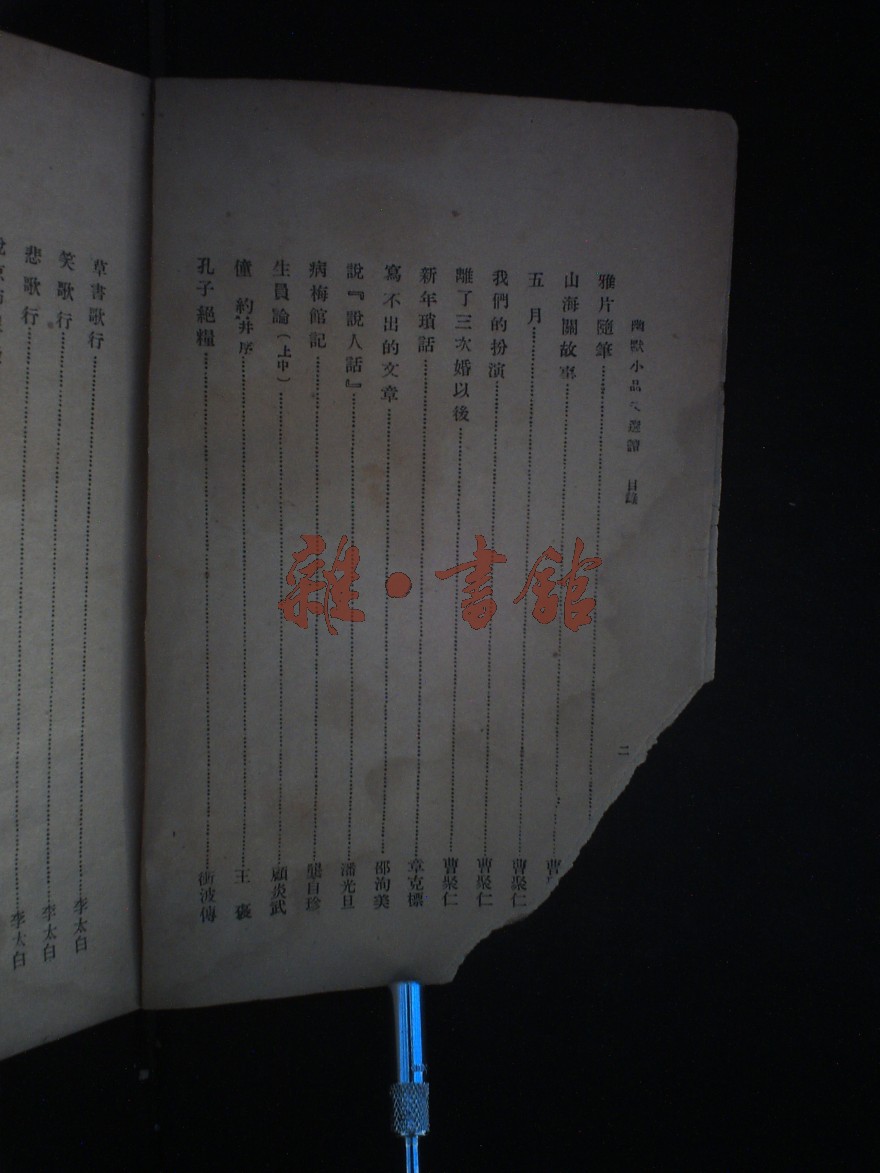 幽默小品文選讀 目錄
二
雅片隨筆
山海關故事 曹
五月 曹聚仁
我們的扮演 曹聚仁
離了三次婚以後 曹聚仁
新年瑣話 章克標
寫不出的文章 邵洵美
說『說人話』 潘光旦
病梅館記 龔自珍
生員論(上中) 顧炎武
僮約并序 王褒
孔子絕糧 衝波傳
草書歌行 李太白
笑歌行 李太白
悲歌行 李太白
雜·書館